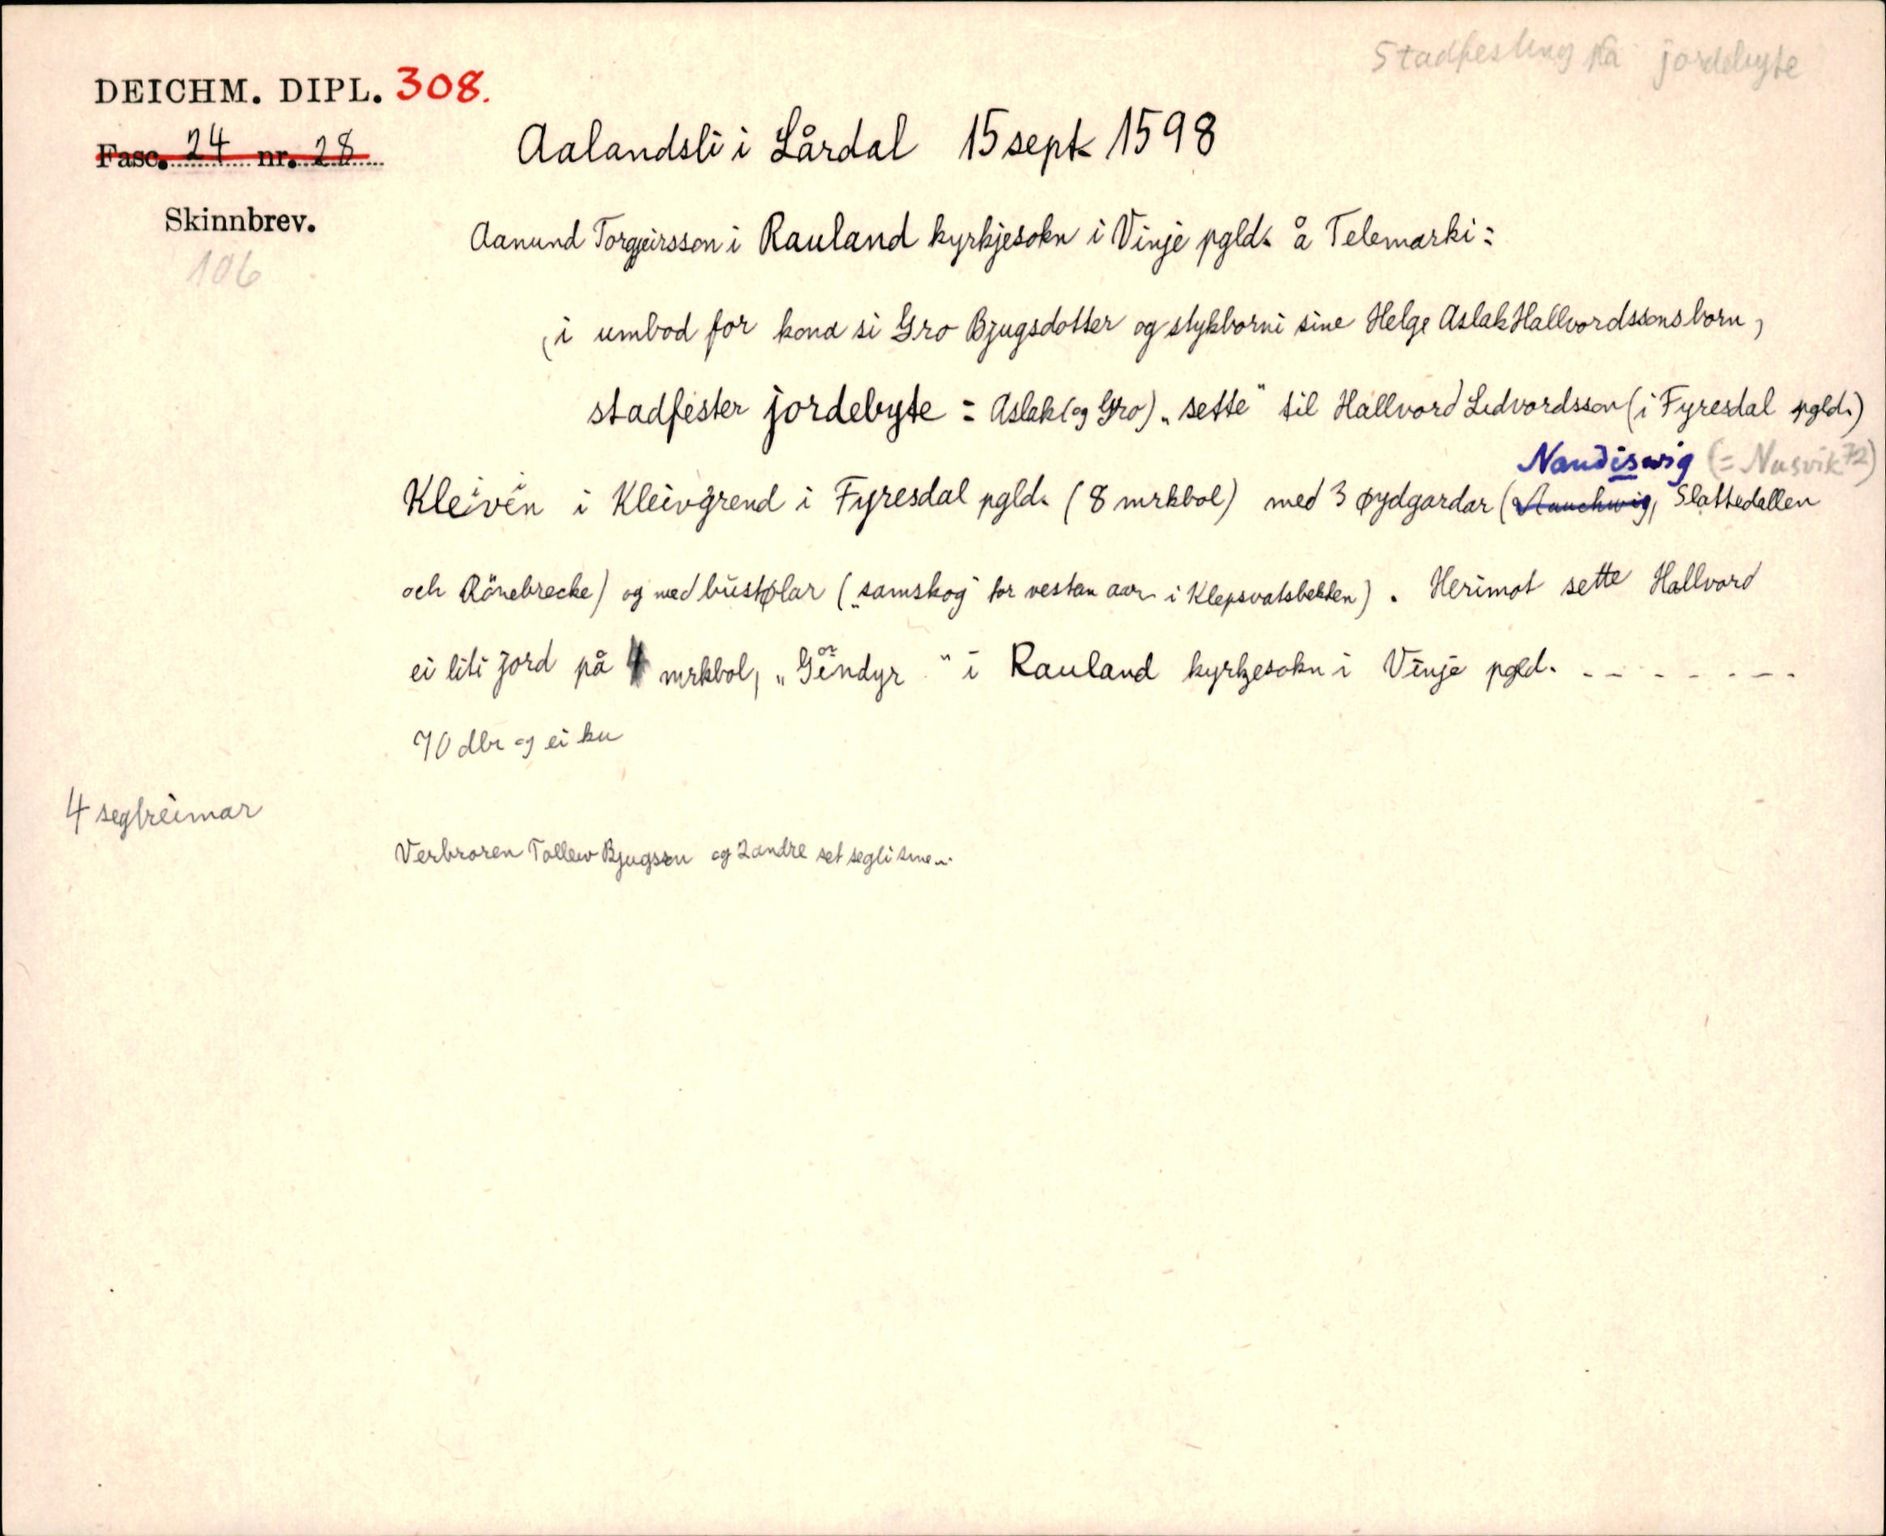 Stadfesting på jordebyte
DEICHM. DIPL. 308.
Fasc. 24 nr. 28
Aalandsli i Lårdal 15 sept 1598
Skinnbrev.
106
Aanund Torgjeirsson i Rauland kyrkjesokn i Vinje pgld. å Telemarki:
(i umbod for kona si Gro Bjugsdotter og stykborni sine Helge Aslak Hallvordssons born,
stadfester jordebyte : Aslak (og Gro) „sette" til Hallvord Ledvordsson (i Fyresdal pgld.)
Naudiswig (= Nusvik 72)
Kleivén i Kleivgrend i Fyresdal pgld. (8 mrkbol) med 3 øydgardar (, Slattedallen
och Rönebrecke) og med bustølar („samskog" for vestan aar i Klepsvatsbekken). Herimot sette Hallvord
ei liti jord på 4 mrkbol, „Gindyr" i Rauland kyrkjesokn i Vinje pgld. - - - - - - -
70 dlr og ei ku
4 seglreimar
Verbroren Tollew Bjugson og 2 andre set segli sine